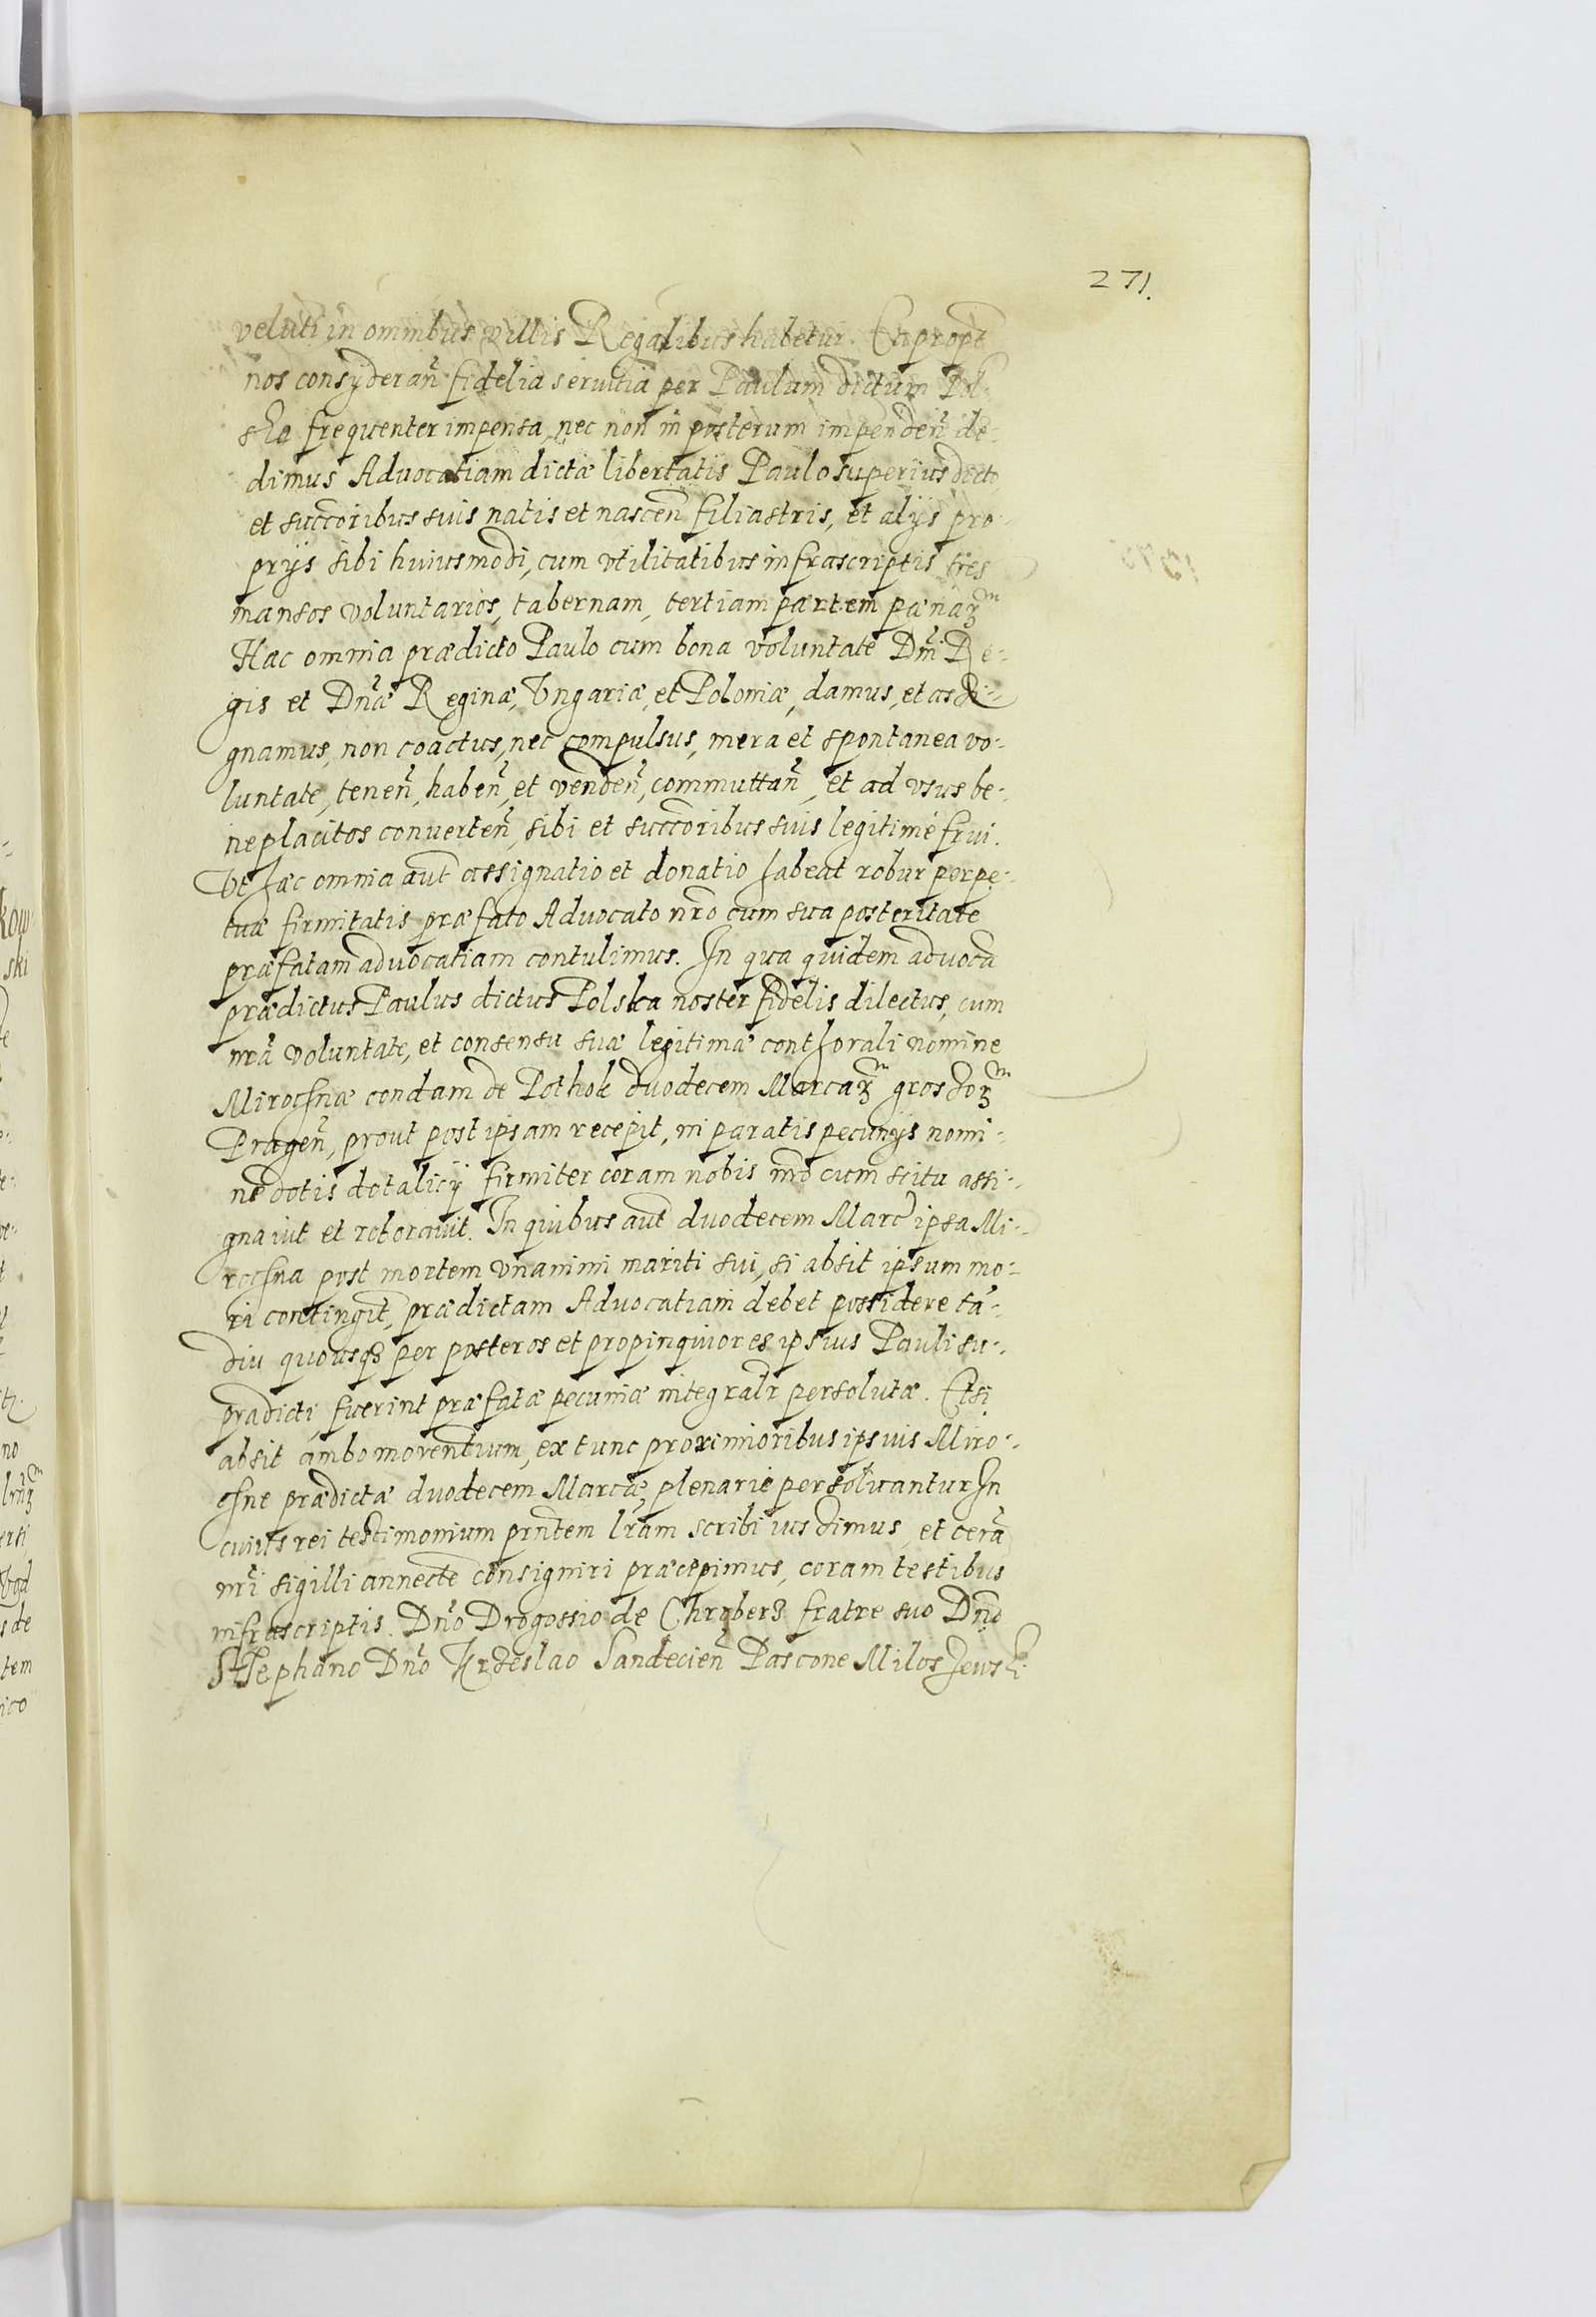 271.
veluti in omnibus villis Regalibus habetur. Et propt̃
nos consyderañ fidelia seruitia per Paulum dictum Pol-
ska frequenter impensa, nec non in posterum impendeñ de-
dimus Advocatiam dictæ libertatis Paulo superius dicto
et succ̃oribus suis natis et nasceñ filiastris, et alijs pro-
prijs sibi huiusmodi, cum vtilitatibus infrascriptis tres
mansos voluntarios, tabernam, tertiam partem pænaꝝ
Hæc omnia prædicto Paulo cum bona voluntate Dñi Re-
gis et Dñæ Reginæ, Vngariæ, et Poloniæ, damus, et assi-
gnamus, non coactus, nec compulsus, mera et spontanea vo-
luntate, teneñ, habeñ, et vendeñ, commuttañ, et ad vsus be-
neplacitos converteñ, sibi et succ̃oribus suis legitimé frui.
Vt hæc omnia aut̃ assignatio et donatio habeat robur perpe-
tuæ firmitatis præfato Advocato nr̃o cum sua posteritate
præfatam advocatiam contulimus. In qua quidem advocã
prædictus Paulus dictus Polska noster fidelis dilectus, cum
nr̃a voluntate, et consensu suæ legitimæ conthorali nomine
Mirochnæ condam de Pothok duodecem Marcaꝝ groshoꝝ
Prageñ, prout post ipsam recepit, in paratis pecunijs nomi-
ne dotis dotalicij firmiter coram nobis mõ cum scitu assi-
gnavit et roboravit. In quibus aut̃ duodecem Marc̃ ipsa Mi-
rochna post mortem vnanimi mariti sui, si absit ipsum mo-
ri contingit, prædictam Advocatiam debet possidere tã-
diu quousqꝫ per posteros et propinquiores ipsius Pauli su-
pradicti, fuerint præfatæ pecuniæ integralr̃ persolutæ. Etsi
absit ambo morentium, ex tunc proximioribus ipsius Miro-
chne prædictæ duodecem Marcæ, plenarié persolvantur In
cuius rei testimonium prñtem lr̃am scribi iussimus, et cerã
nr̃i sigilli annecte consigniri præcepimus, coram testibus
infrascriptis. Dño Drogossio de Chroberz fratre suo Dño
Stephano Dño Krzeslao Sandecieñ Pascone Miloshewski